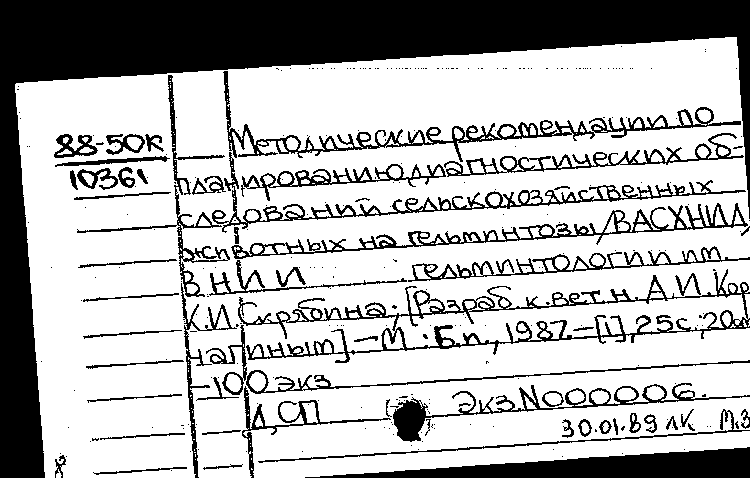 88-50К
10361
Методические рекомендации по
планированию диагностических об-
следований сельскохозяйственных
животных на гельминтозы/ВАСХНИЛ,
ВНИИ гельминтологии им.
К.И.Скрябина; [Разраб. к.вет.н. А.И.Кор
чагиным].-М.: Б.п., 1987.-[1], 25с.; 20см
-100 экз.
ДСП Экз.N000006.
30.01.89 ЛК М.З